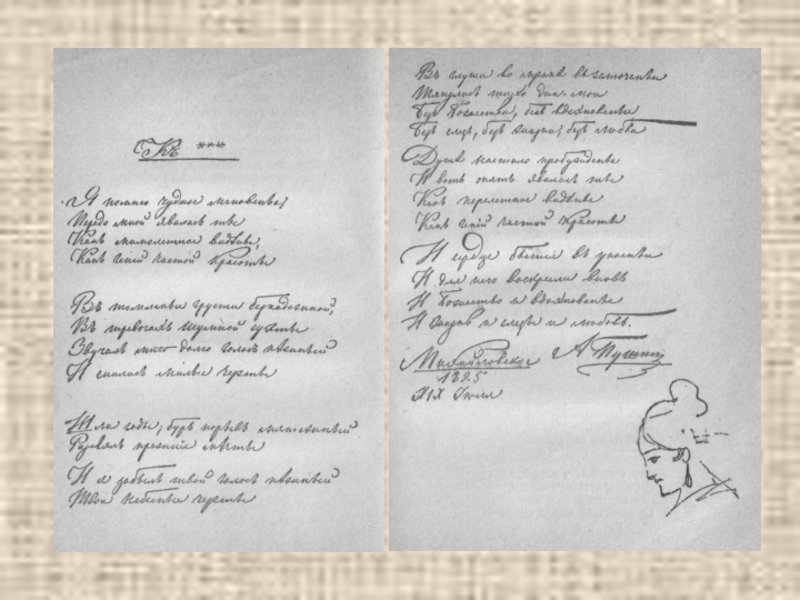 Къ ***
Я помню чудное мгновенье;
Передо мной явилась ты
Какъ мимолетное видѣнье,
Какъ геній чистой красоты
Въ томленьи грусти безнадежной,
Въ тревогахъ шумной суеты
Звучалъ мнѣ долго голосъ нѣжный
И снились милые черты
Шли годы; бурь порывъ мятежный
Разсѣялъ прежніе мечты
И я забылъ твой голосъ нѣжный
Твои небесные черты
Въ глуши во мракѣ въ заточеньи
Тянулись тихо дни мои
Безъ божества, безъ вдохновенья
Безъ слезъ, безъ жизни, безъ любви
Душѣ настало пробужденье
И вотъ опять явилась ты
Какъ видѣнье
Какъ геній чистой красоты
И сердце бьется въ упоеньи
И для него воскресли вновь
И божество и вдохновенье
И жизнь и слезы и любовь.
Михайловское А Пушкин
1825
XIX Июля